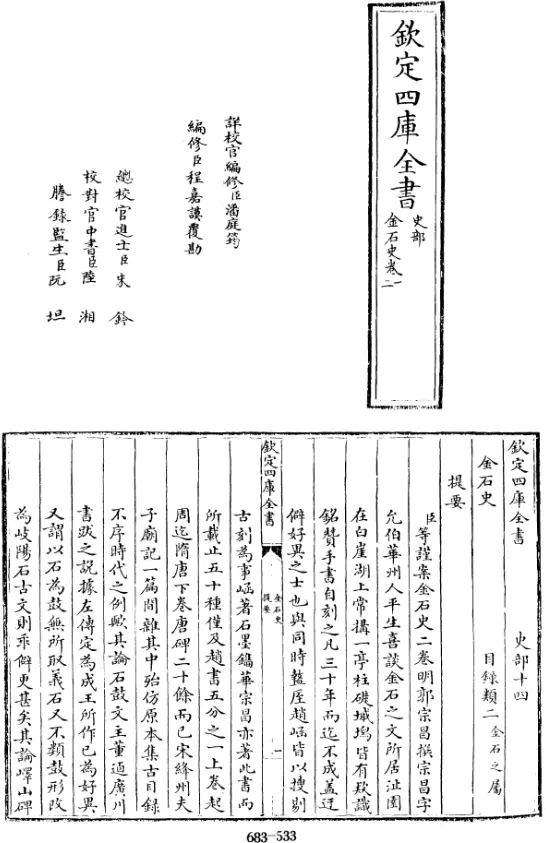 欽定四庫全書
史部
金石史卷一
二
詳校官編修臣潘庭筠
編修臣程嘉謨覆勘
總校官進士臣朱鈐
校對官中書臣陸湘
謄錄監生臣阮坦
欽定四庫全書
史部十四
金石史
目錄類二金石之屬
提要
臣等謹案金石史二卷明郭宗昌撰宗昌字
允伯華州人平生喜談金石之文所居沚園
在白崖湖上常搆一亭柱礎墄碣皆有欵識
銘贊手書自刻之凡三十年而迄不成蓋迂
僻好異之士也與同時盩厔趙崡皆以搜剔
欽定四庫全書
金石史
提要
一
古刻為事崡著石墨鐫華宗昌亦著此書而
所載止五十種僅及趙書五分之一上卷起
周迄隋唐下卷唐碑二十餘而已宋絳州夫
子廟記一篇間雜其中殆仿原本集古目録
不序時代之例歟其論石鼓文主董逌廣川
書跋之說據左傳定為成王所作已為好異
又謂以石為鼓無所取義石又不類鼓形改
為岐陽石古文則乖僻更甚矣其論嶧山碑
683-533